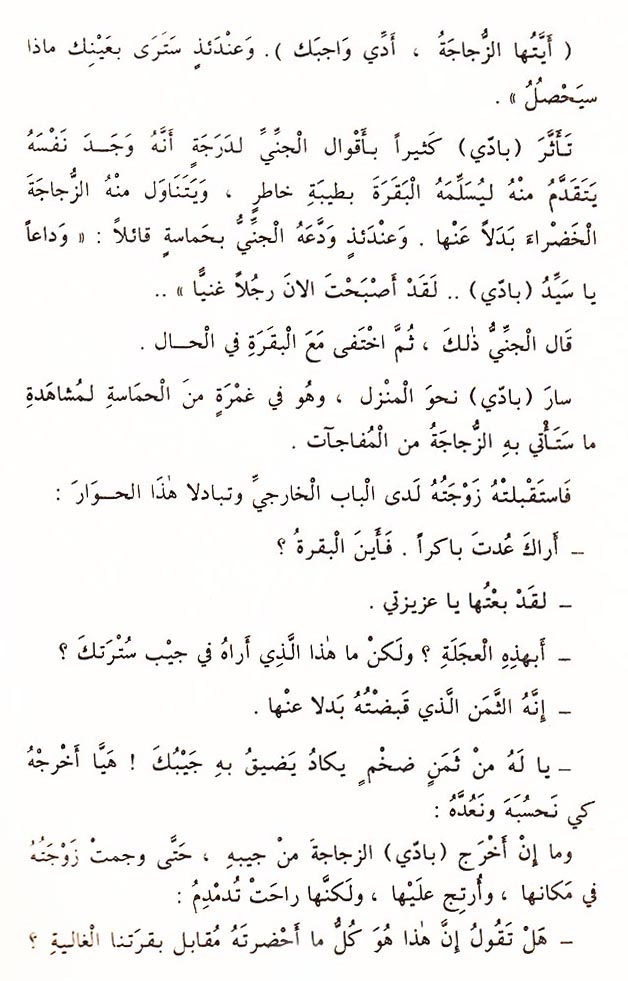 ( أَيَّتُها الزُّجاجَةُ ، أَدِّي وَاجبَك ) . وَعنْدَئذٍ سَتَرَى بعَيْنِك ماذا
سيَحْصلُ » .
تَأَثَّرَ (بادّي) كَثيراً بأَقْوال الْجنِّيِّ لدَرَجَةٍ أَنَّهُ وَجَـدَ نَفْسَهُ
يَتَقَدَّمُ منْهُ ليُسَلِّمَهُ الْبَقَرَةَ بطيبَةِ خاطرٍ ، وَيَتَنَاوَل منْهُ الزُّجاجَةَ
الْخَضْراءَ بَدَلاً عَنْها . وَعنْدَئذٍ وَدَّعَهُ الْجنِّيُّ بحَماسةٍ قائلاً : « وَداعاً
يا سَيِّدُ (بادّي) .. لَقَدْ أَصْبَحْتَ الانَ رجُلاً غنيًّا » ..
قَال الْجنِّيُّ ذٰلكَ ، ثُمَّ اخْتَفى مَعَ الْبقَرَةِ في الْحـال .
سارَ (بادّي) نحوَ الْمنْزل ، وهُو في غمْرَةٍ منَ الْحمَاسةِ لمُشاهَدةِ
ما سَتَأْتي بهِ الزُّجاجَةُ من الْمُفاجآت .
فَاستَقْبلتْهُ زَوْجَتُهُ لَدى الْباب الْخارجيِّ وتبادلا هٰذَا الحـوَارَ :
– أَراكَ عُدتَ باكراً . فَأَينَ الْبقرةُ ؟
– لقَدْ بعْتُها يا عزيزتي .
– أَبهذِهِ الْعجَلَةِ ؟ ولَكنْ ما هٰذا الَّذِي أَراهُ في جيْب سُتْرَتكَ ؟
– إِنَّهُ الثَّمَن الَّذي قَبضْتُهُ بَدلا عنْها .
– يا لَهُ منْ ثَمَنٍ ضخْمٍ يكادُ يَضيقُ بهِ جَيْبُكَ ! هَيَّا أَخْرجْهُ
كي نَحسُبَهَ ونَعُدَّهُ :
وما إِنْ أَخْرَج (بادّي) الزجاجةَ منْ جيبهِ ، حَتَّى وجمتْ زَوْجَتُهُ
في مَكانها ، وأُرتِج علَيْها ، ولَكنَّها راحَتْ تُدمْدِمُ :
– هَلْ تَقُولُ إِنَّ هٰذا هُوَ كُلُّ ما أَحْضرتَهُ مُقابل بقرَتنا الْغاليةِ ؟